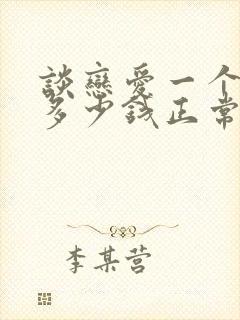 談戀愛一个
多少錢正常
李某营